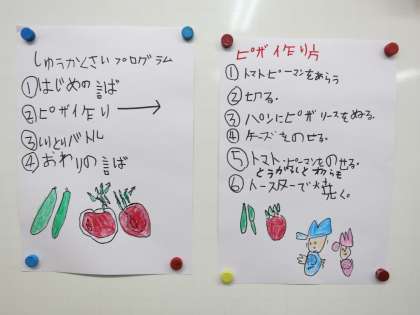 しゅうかくさいプログラム
①はじめの言ば
②ピザイ作り→
③しりとりバトル
④おわりの言ば
ピザイ作り方
①トマトピーマンをあらう
②切る。
③パンにピザソースをぬる。
④チーズをのせる。
⑤トマト・ピーマンをのせる。
とうがらしとわらも
⑥トースターで焼く。